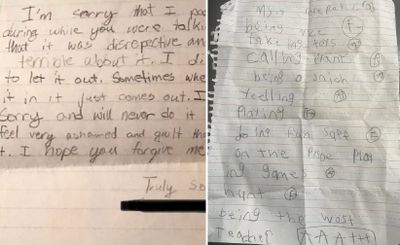 I'm sorry that I poo
during while you were talki
that it was disrepective an
terrible about it. I di
to let it out. Sometimes whe
it in it just comes out. I
sorry and will never do it
feel very ashamed and guilt tha
t. I hope you forgive me
Truly so
My report car
being
takeing tors
calling
being a snich
yelling
Playing
on the Phone play
ing games
hunt
being the wost
Teacher AAA+++